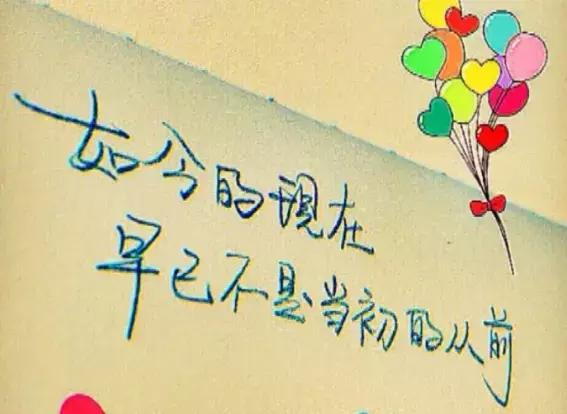 如今的现在
早已不是当初的从前